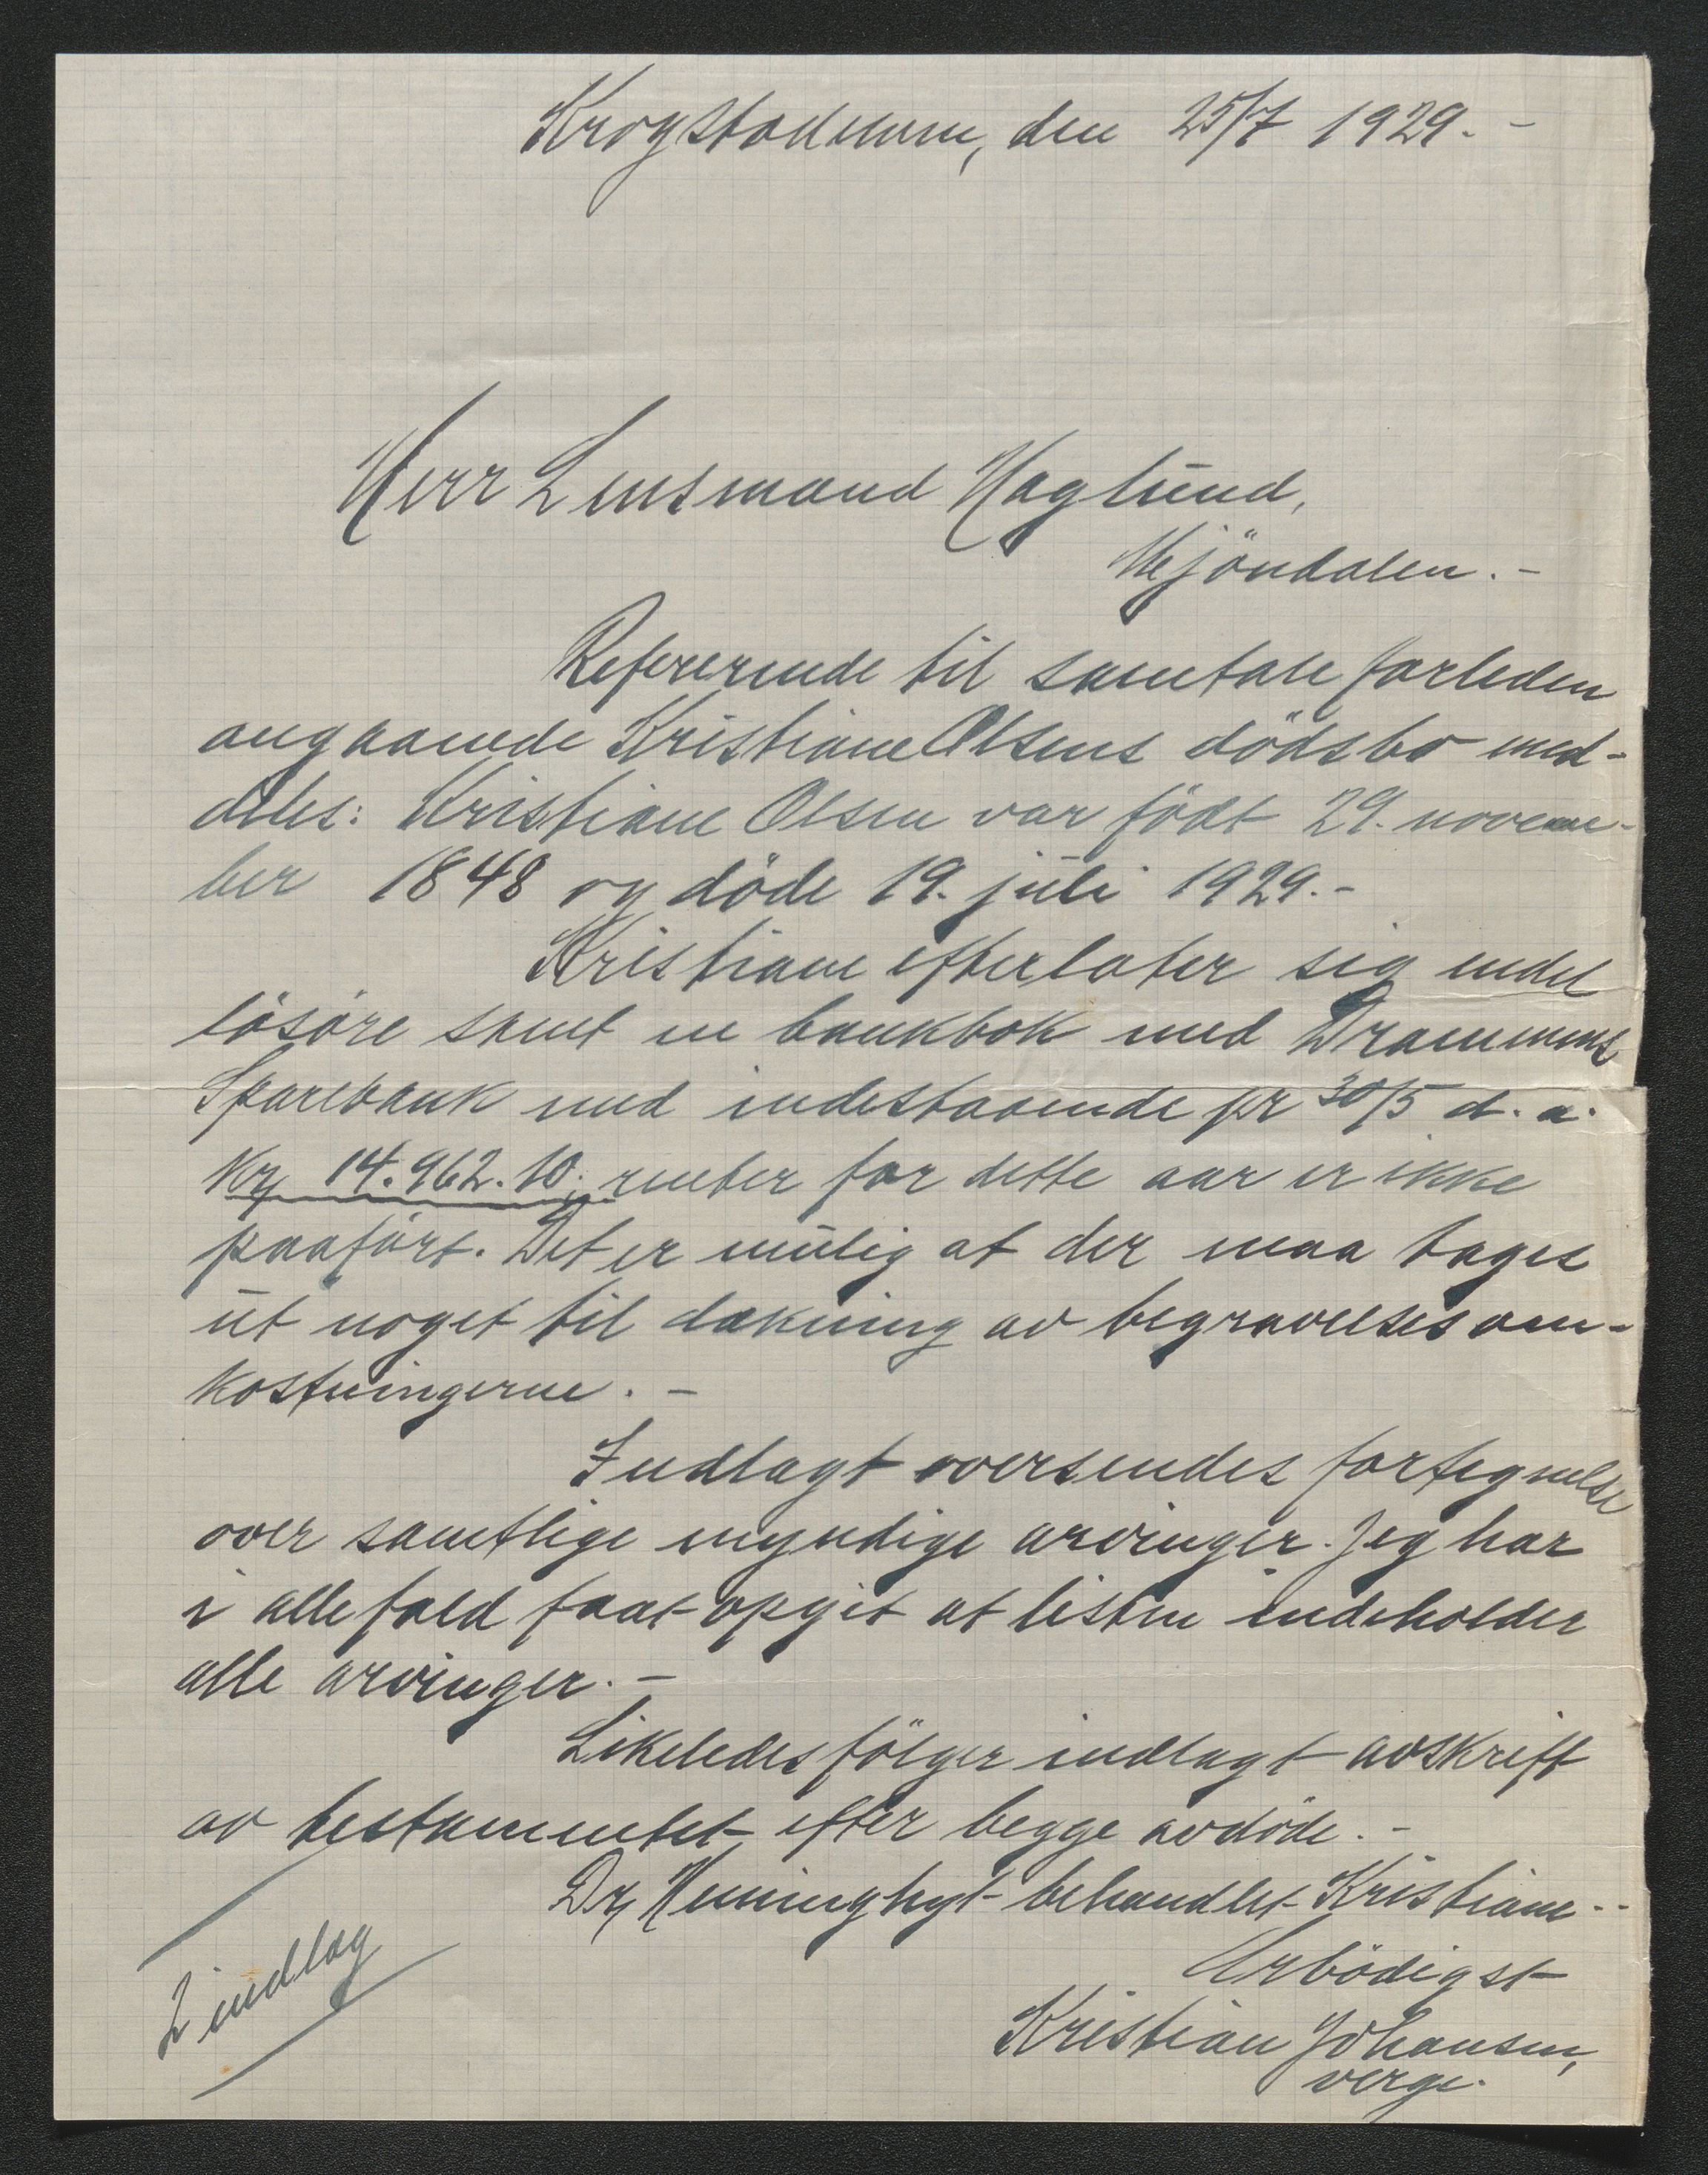 Krogstadelven, den 25/7 1929.-
Herr Lensmand Haglund,
Mjöndalen.-
Refererende til samtale forleden
angaaende Kristiane Olsens dödsbo med-
deles: Kristiane Olsen var födt 29. novem-
ber 1848 og döde 19. juli 1929.-
Kristiane efterlater sig endel
lösöre samt en bankbok med Drammens
Sparebank med indestaaende pr 30/5 d. a.
Kr. 14.962.10; renter for dette aar er ikke
paafört. Det er mulig at der maa tages
ut noget til dækning av begravelsesom-
kostningerne.-
Indlagt oversendes fortegnelse
over samtlige myndige arvinger. Jeg har
i allefald faat opgit at listen indeholder
alle arvinger.-
Likeledes följer indlagt avskrift
av testamentet efter begge avdöde.-
Dr. behandlet Kristiane.-
Ærbödigst
Kristian Johansen,
verge.
2 indlag